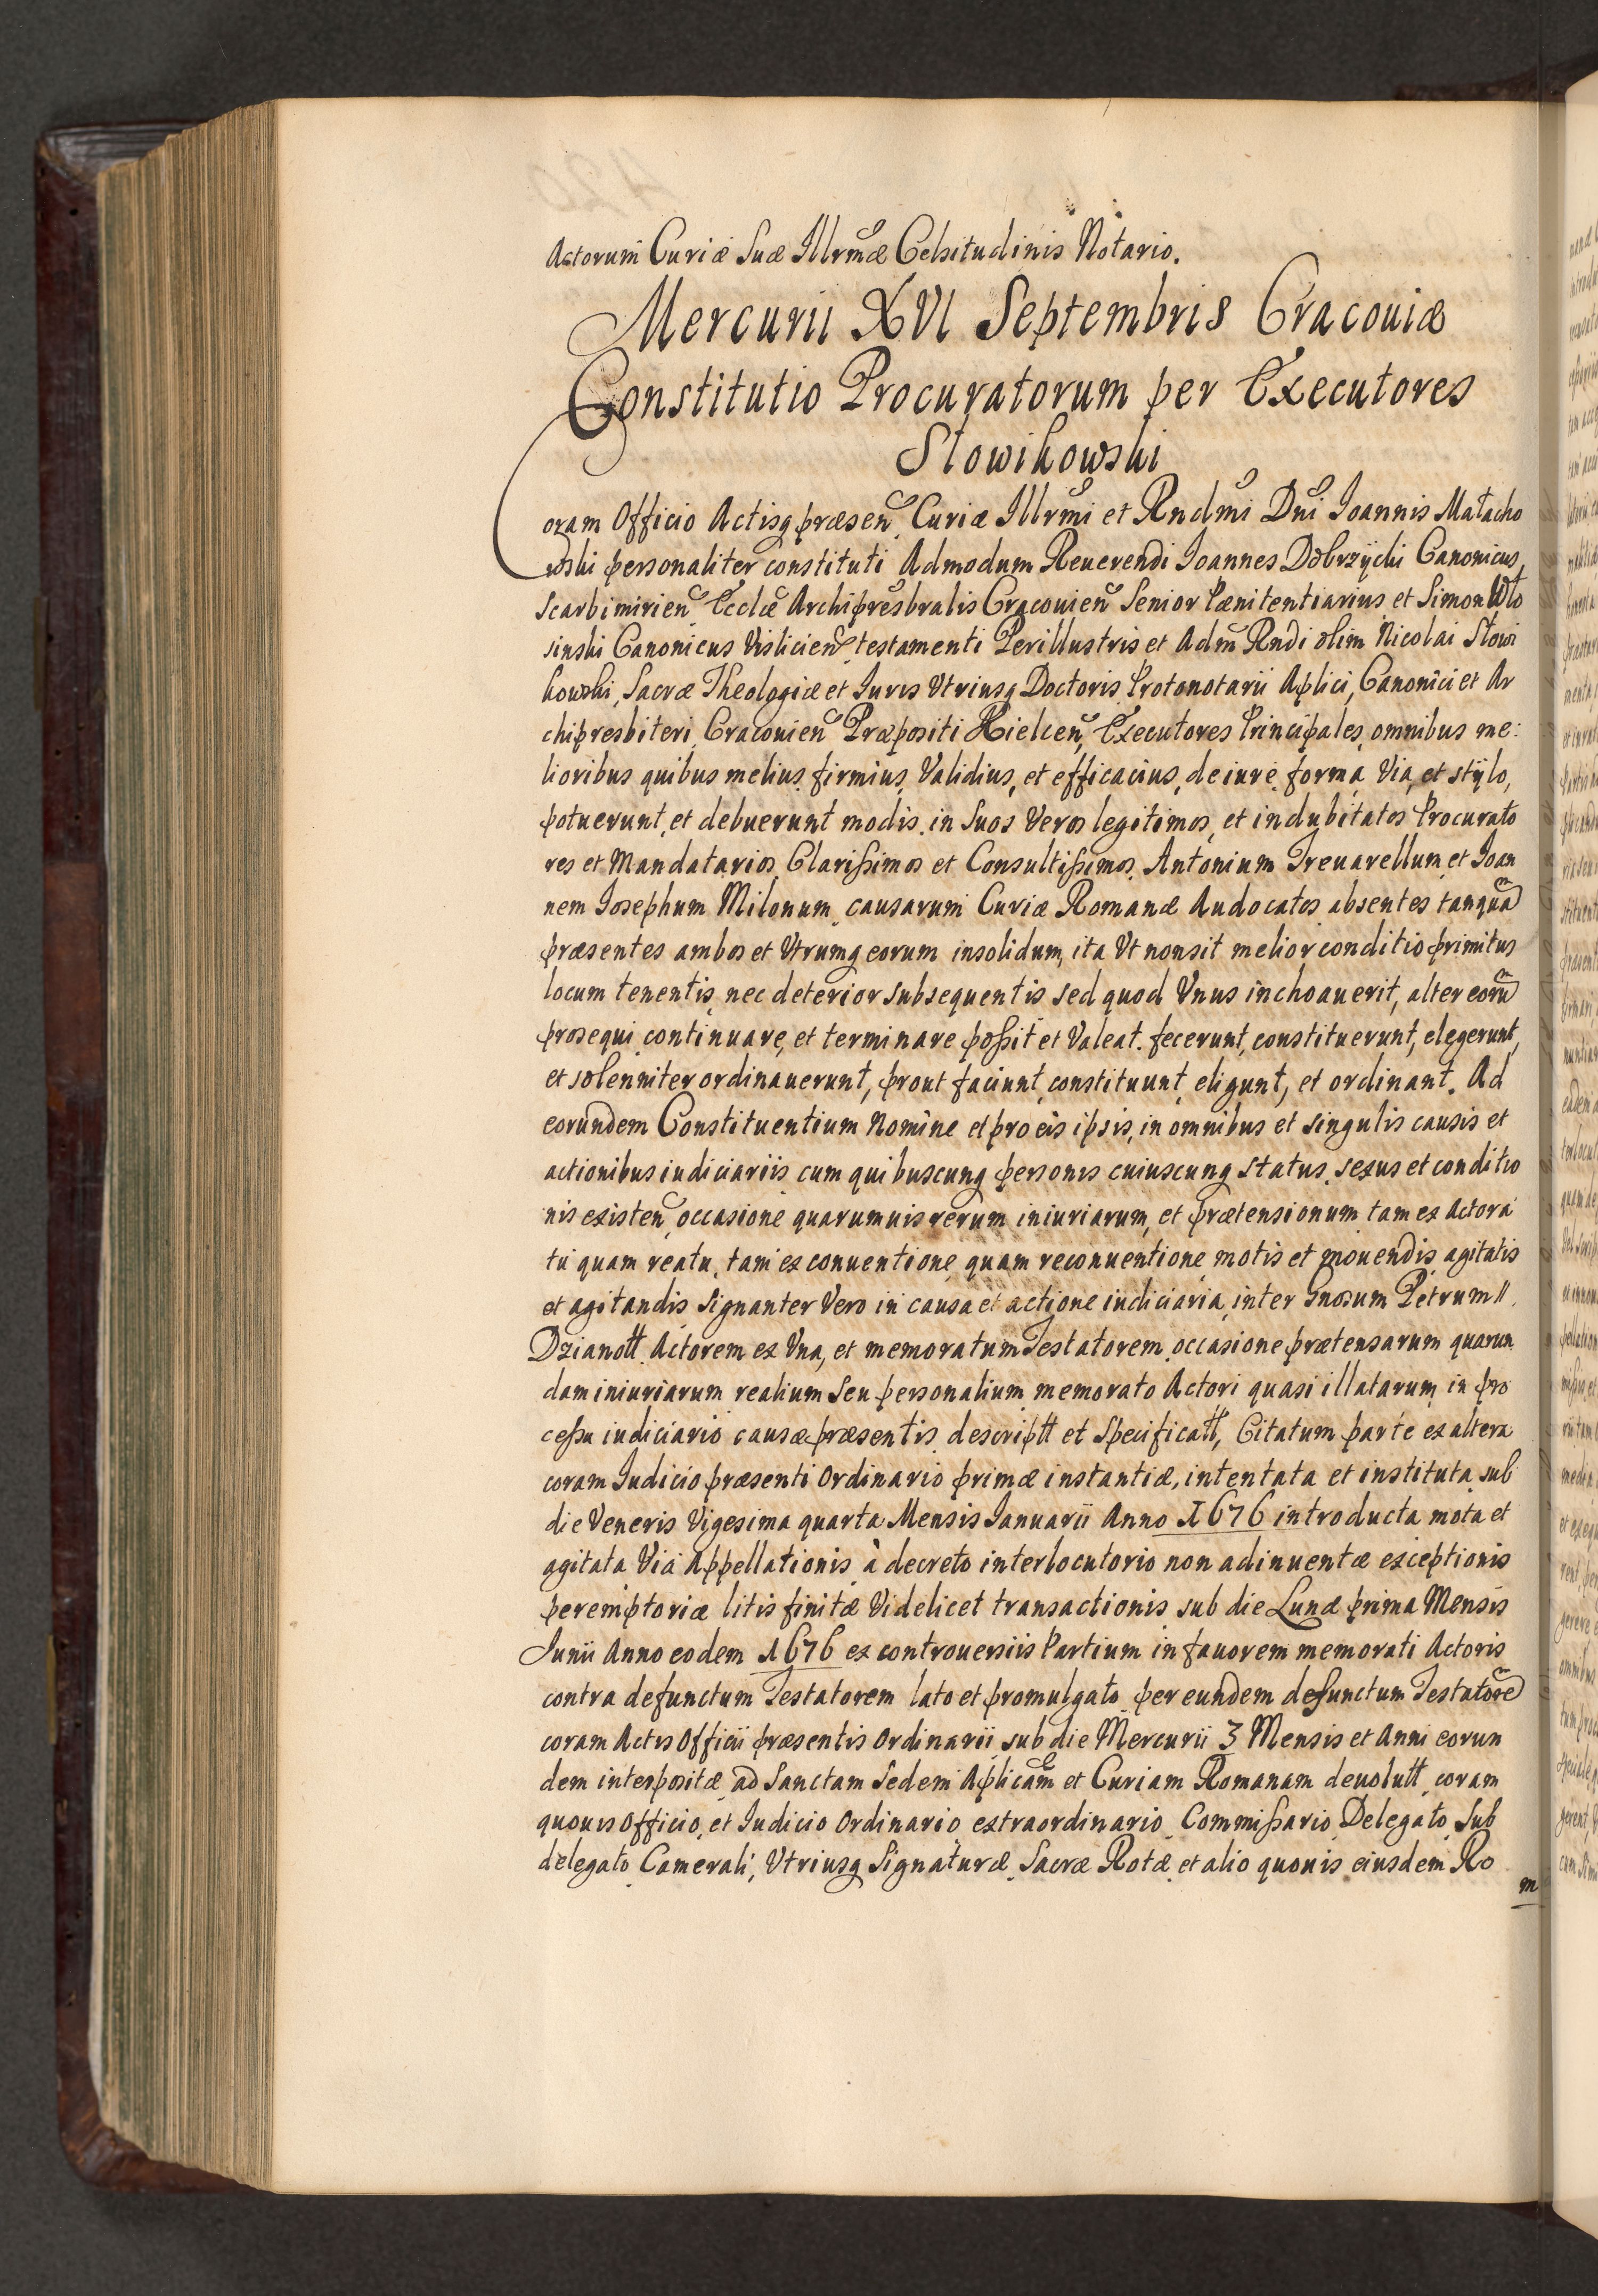 Actorum Curiæ Suæ Illrmæ Celsitudinis Notario.
Mercurii XVI Septembris Cracouiæ
Constitutio Procuratorum per Executores
Słowikowski
Coram Officio Actisq præsen. Curiæ Illrmi et Rndmi Dni Ioannis Małacho
wski personaliter constituti Admodum Reuerendi Ioannes Dobrzycki Canonicus
Scarbimirien Ecclæ Archipresbralis Cracouien Senior Pænitentiarius et Simon Wło
sinski Canonicus Vislicien, testamenti Perillustris et Adm Rndi olim Nicolai Słowi
kowski, Sacræ Theologiæ et Iuris Vtriusq Doctoris Protonotarii Aplici, Canonici et Ar
chipresbiteri Cracouien Præpositi Kielcen, Executores Principales, omnibus me:
lioribus quibus melius firmius, Validius, et efficacius, de iure forma Via, et stÿlo,
potuerunt, et debuerunt modis, in Suos Veros legitimos, et indubitatos Procurato
res et Mandatarios, Clarissimos et Consultissimos, Antonium Treuarellum et Ioan
nem Iosephum Milonum causarum Curiæ Romanæ Audocatos absentes tanqua
præsentes ambos et Vtrumq eorum insolidum, ita Vt nonsit melior conditio primitus
locum tenentis, nec deterior subsequentis, sed quod Vnus inchoauerit, alter eoru
prosequi continuare, et terminare possit et Valeat. fecerunt, constituerunt, elegerunt,
et solenniter ordinauerunt, prout faciunt, constituunt, eligunt, et ordinant. Ad
eorundem Constituentium Nomine et pro eis ipsis, in omnibus et singulis causis et
actionibus iudiciariis cum quibuscunq personis cuiuscunq status, sexus et conditio
nis existen, occasione quarumuis rerum iniuriarum, et prætensionum tam ex Actora
tu quam reatu, tam ex conuentione quam reconuentione motis et mouendis agitatis
et agitandis, signanter Vero in causa et actione iudiciaria, inter Gnosum Petrum //
Dzianott Actorem ex Vna, et memoratum Testatorem occasione prætensarum quarun
dam iniuriarum realium seu personalium memorato Actori quasi illatarum, in pro
cessu iudiciario causæ præsentis descriptt et Specificatt, Citatum parte ex altera
coram Iudicio præsenti Ordinario primæ instantiæ, intentata et instituta, sub
die Veneris Vigesima quarta Mensis Ianuarii Anno 1676 introducta mota et
agitata Via Appellationis à decreto interlocutorio non adinuentæ exceptionis
peremptoriæ litis finitæ Videlicet transactionis sub die Lunæ prima Mensis
Iunii Anno eodem 1676 ex controuersiis Partium in fauorem memorati Actoris
contra defunctum Testatorem lato et promulgato per eundem defunctum Testatore
coram Actis Officii præsentis Ordinarii sub die Mercurii 3 Mensis et Anni eorun
dem interpositæ ad Sanctam Sedem Aplicam et Curiam Romanam deuolutt coram
quouis Officio, et Iudicio Ordinario extraordinario, Commissario, Delegato, Sub
delegato, Camerali, Vtriusq Signaturæ, Sacræ Rotæ et alio quouis eiusdem Ro
m